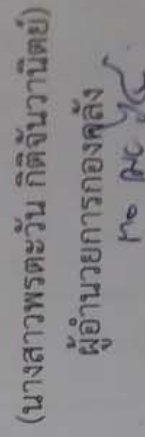 (นางสาวพรตะวัน กิติจันวานิตย์)
ผู้อำนวยการกองคลัง